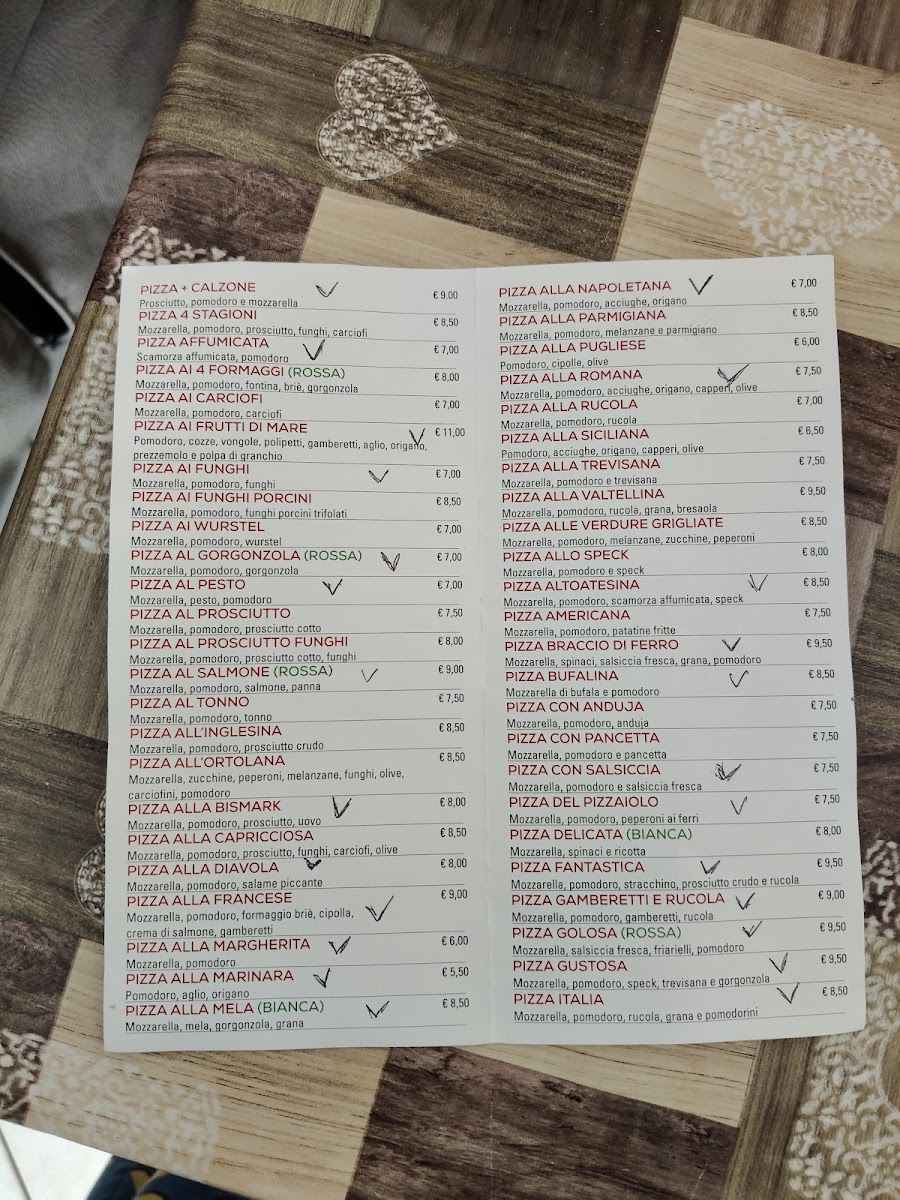 PIZZA + CALZONE € 9.00
Prosciutto, pomodoro e mozzarella
PIZZA 4 STAGIONI € 8,50
Mozzarella, pomodoro, prosciutto, funghi, carciofi
PIZZA AFFUMICATA € 7,00
Scamorza affumicata, pomodoro
PIZZA AI 4 FORMAGGI (ROSSA) € 8,00
Mozzarella, pomodoro, fontina, briè, gorgonzola
PIZZA AI CARCIOFI € 7,00
Mozzarella, pomodoro, carciofi
PIZZA AI FRUTTI DI MARE € 11,00
Pomodoro, cozze, vongole, polipetti, gamberetti, aglio, origano,
prezzemolo e polpa di granchio
PIZZA AI FUNGHI € 7,00
Mozzarella, pomodoro, funghi
PIZZA AI FUNGHI PORCINI € 8,50
Mozzarella, pomodoro, funghi porcini trifolati
PIZZA AI WURSTEL € 7,00
Mozzarella, pomodoro, wurstel
PIZZA AL GORGONZOLA (ROSSA) € 7,00
Mozzarella, pomodoro, gorgonzola
PIZZA AL PESTO € 7,00
Mozzarella, pesto, pomodoro
PIZZA AL PROSCIUTTO € 7,50
Mozzarella, pomodoro, prosciutto cotto
PIZZA AL PROSCIUTTO FUNGHI € 8,00
Mozzarella, pomodoro, prosciutto cotto, funghi
PIZZA AL SALMONE (ROSSA) € 9,00
Mozzarella, pomodoro, salmone, panna
PIZZA AL TONNO € 7,50
Mozzarella, pomodoro, tonno
PIZZA ALL'INGLESINA € 8,50
Mozzarella, pomodoro, prosciutto crudo
PIZZA ALL'ORTOLANA € 8,50
Mozzarella, zucchine, peperoni, melanzane, funghi, olive,
carciofini, pomodoro
PIZZA ALLA BISMARK € 8,00
Mozzarella, pomodoro, prosciutto, uovo
PIZZA ALLA CAPRICCIOSA € 8,50
Mozzarella, pomodoro, prosciutto, funghi, carciofi, olive
PIZZA ALLA DIAVOLA € 8,00
Mozzarella, pomodoro, salame piccante
PIZZA ALLA FRANCESE € 9,00
Mozzarella, pomodoro, formaggio briè, cipolla,
crema di salmone, gamberetti
PIZZA ALLA MARGHERITA € 6,00
Mozzarella, pomodoro
PIZZA ALLA MARINARA € 5,50
Pomodoro, aglio, origano
PIZZA ALLA MELA (BIANCA) € 8,50
Mozzarella, mela, gorgonzola, grana
PIZZA ALLA NAPOLETANA € 7,00
Mozzarella, pomodoro, acciughe, origano
PIZZA ALLA PARMIGIANA € 8,50
Mozzarella, pomodoro, melanzane e parmigiano
PIZZA ALLA PUGLIESE € 6,00
Pomodoro, cipolle, olive
PIZZA ALLA ROMANA € 7,50
Mozzarella, pomodoro, acciughe, origano, capperi, olive
PIZZA ALLA RUCOLA € 7,00
Mozzarella, pomodoro, rucola
PIZZA ALLA SICILIANA € 6,50
Pomodoro, acciughe, origano, capperi, olive
PIZZA ALLA TREVISANA € 7,50
Mozzarella, pomodoro e trevisana
PIZZA ALLA VALTELLINA € 9,50
Mozzarella, pomodoro, rucola, grana, bresaola
PIZZA ALLE VERDURE GRIGLIATE € 8,50
Mozzarella, pomodoro, melanzane, zucchine, peperoni
PIZZA ALLO SPECK € 8,00
Mozzarella, pomodoro e speck
PIZZA ALTOATESINA € 8,50
Mozzarella, pomodoro, scamorza affumicata, speck
PIZZA AMERICANA € 7,50
Mozzarella, pomodoro, patatine fritte
PIZZA BRACCIO DI FERRO € 9,50
Mozzarella, spinaci, salsiccia fresca, grana, pomodoro
PIZZA BUFALINA € 8,50
Mozzarella di bufala e pomodoro
PIZZA CON ANDUJA € 7,50
Mozzarella, pomodoro, anduja
PIZZA CON PANCETTA € 7,50
Mozzarella, pomodoro e pancetta
PIZZA CON SALSICCIA € 7,50
Mozzarella, pomodoro e salsiccia fresca
PIZZA DEL PIZZAIOLO € 7,50
Mozzarella, pomodoro, peperoni ai ferri
PIZZA DELICATA (BIANCA) € 8,00
Mozzarella, spinaci e ricotta
PIZZA FANTASTICA € 9,50
Mozzarella, pomodoro, stracchino, prosciutto crudo e rucola
PIZZA GAMBERETTI E RUCOLA € 9,00
Mozzarella, pomodoro, gamberetti, rucola
PIZZA GOLOSA (ROSSA) € 9,50
Mozzarella, salsiccia fresca, friarielli, pomodoro
PIZZA GUSTOSA € 9,50
Mozzarella, pomodoro, speck, trevisana e gorgonzola
PIZZA ITALIA € 8,50
Mozzarella, pomodoro, rucola, grana e pomodorini